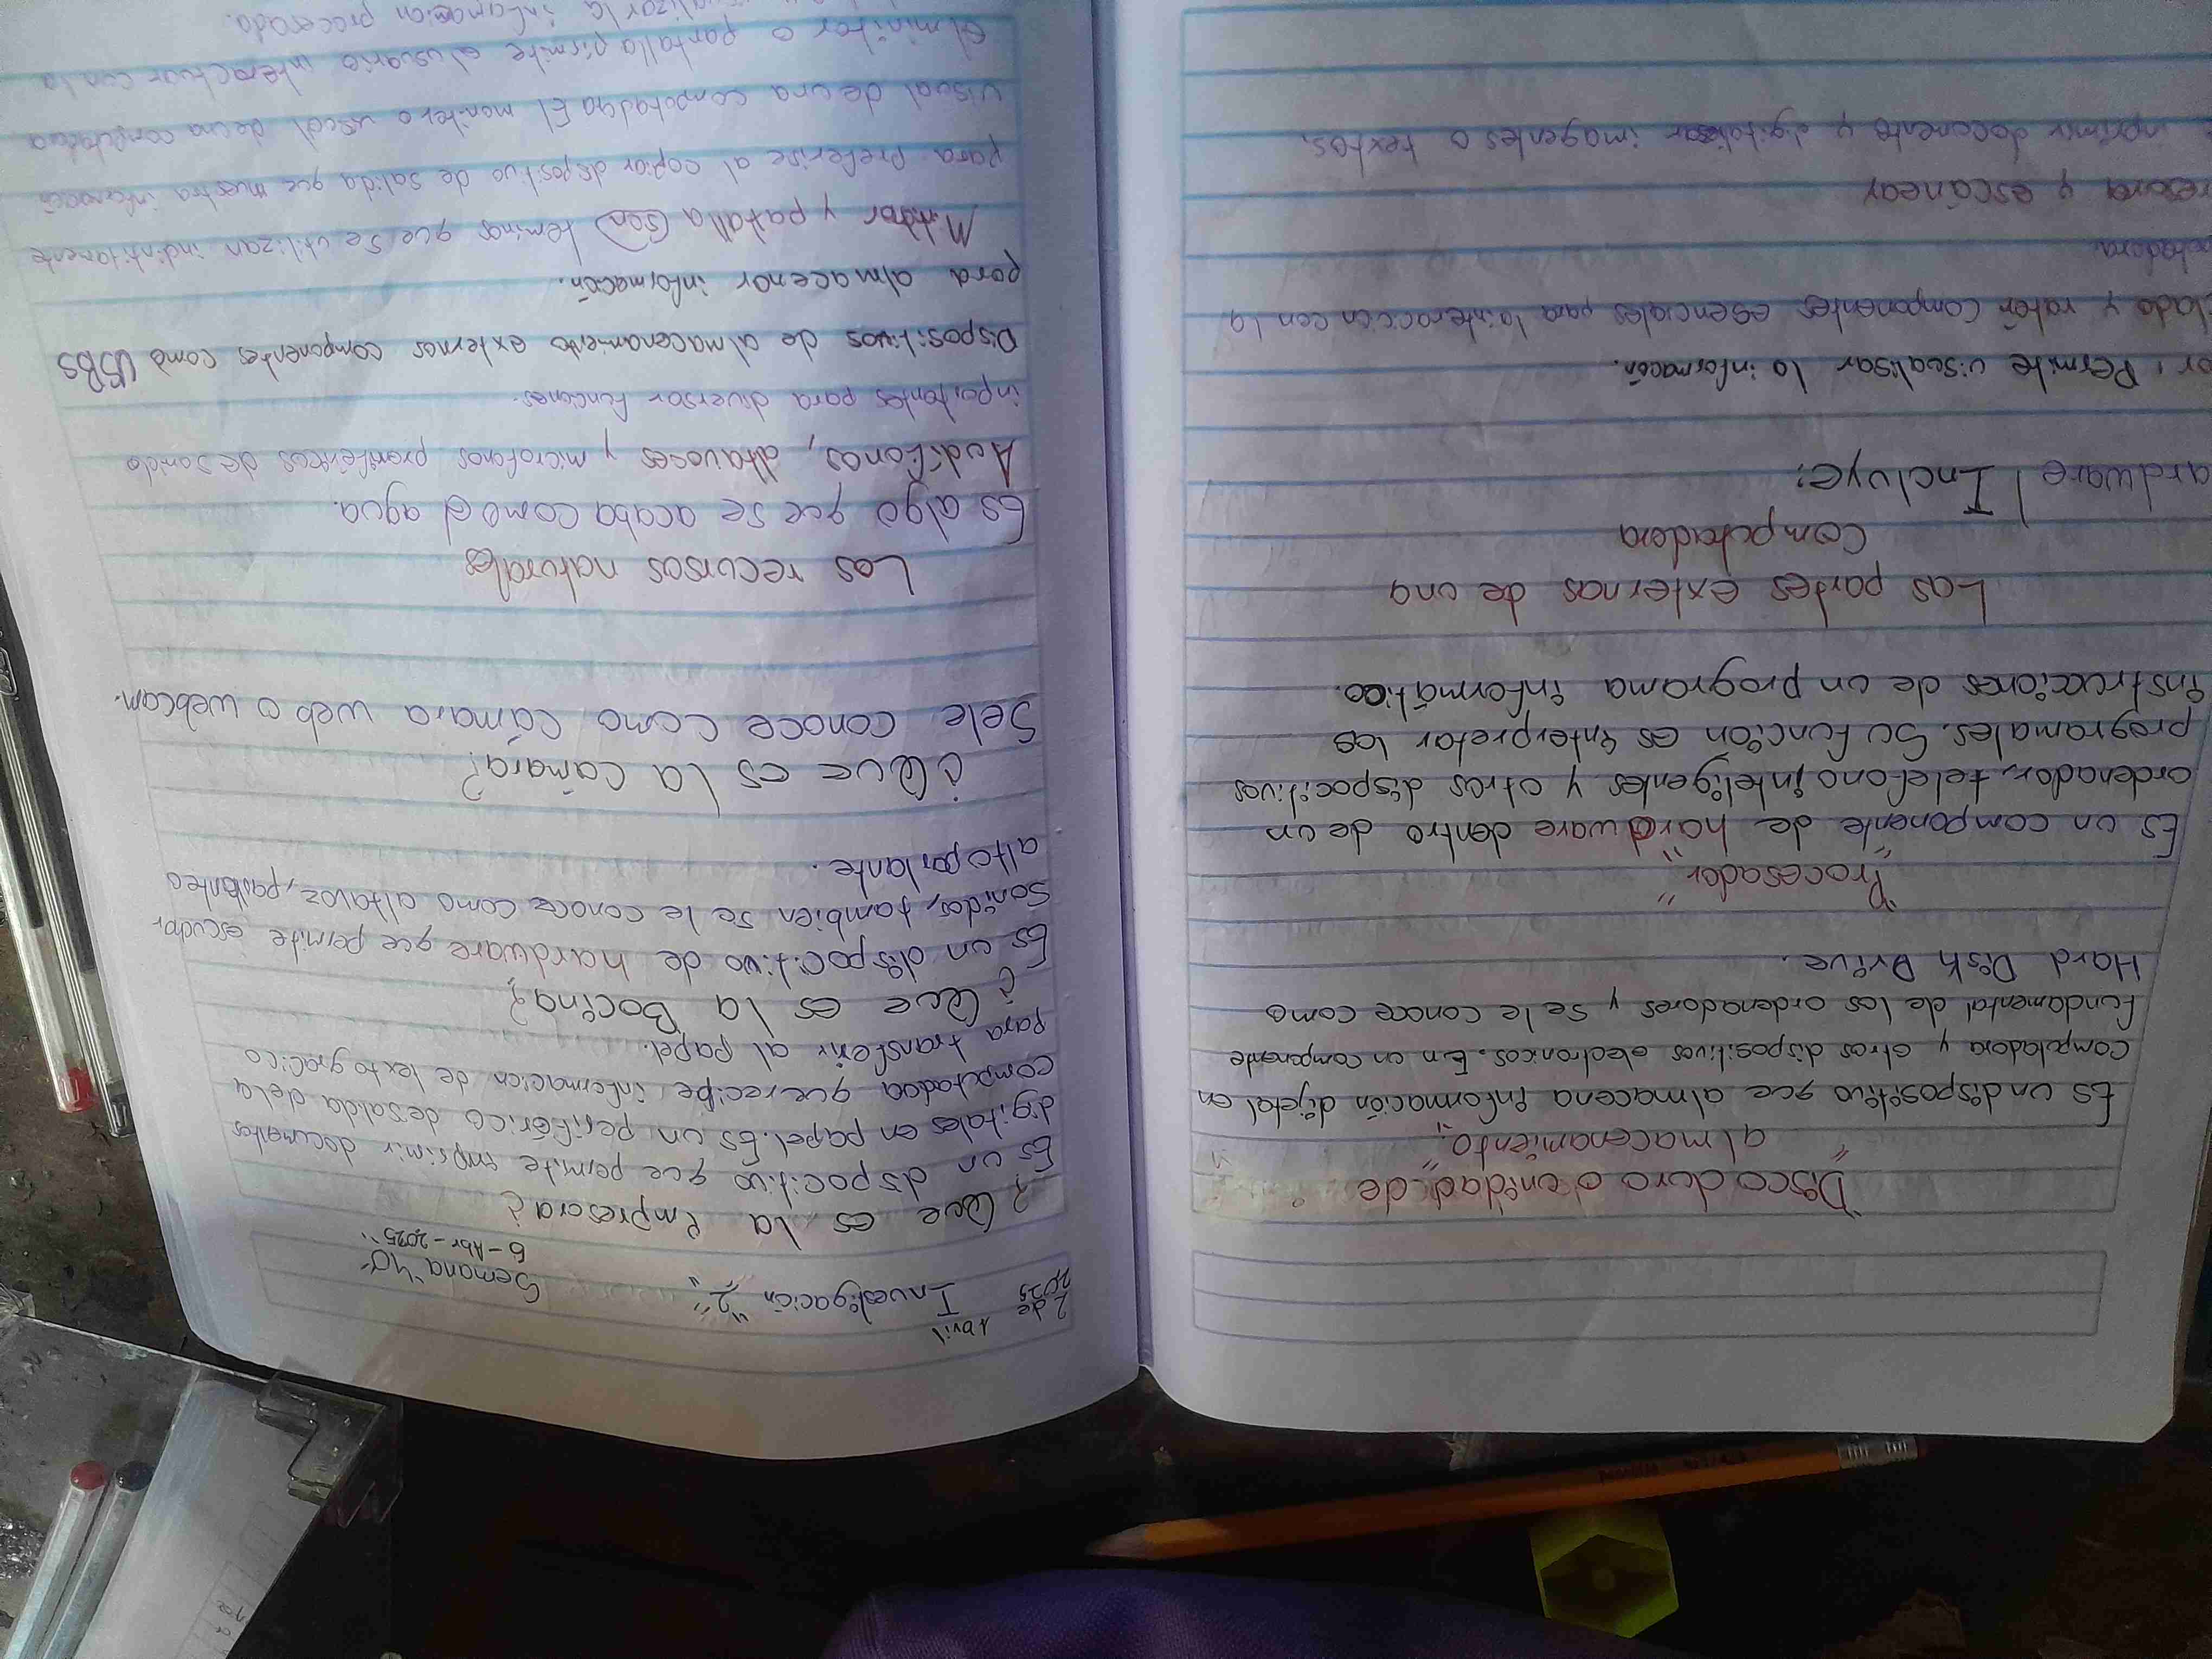 "Disco duro o unidad de
almacenamiento".
Es un dispositivo que almacena información digital en
computadora y otros dispositivos electronicos. En un componente
fundamental de los ordenadores y se le conoce como
Hard Disk Drive.
"Procesador"
Es un componente de hardware dentro de un
ordenador, telefono inteligentes y otros dispocitivos
programales. Su función es interpretar las
instrucciones de un programa informático.
Las partes externas de una
computadora
ardware Incluye:
or: Permite visualisar la información.
lado y ratón componentes esenciales para la interacción con la
tadora
esora y escanear
inprimir documento y digitalisar imagentes o textos.
2 de Abril 2025
Investigación "2"
Semana "40"
6-Abr-2025
? Que es la Impresora?
Es un dspocitivo que permite imprimir documentos
digitales en papel. Es un periférico de salida de la
computadoa que recibe informacion de texto gracico
para transferir al papel.
¿Que es la Bocina?
Es un dispocitivo de hardware que permite escuchar
Sonidos, tambien se le conoce como altavoz,
altoparlante.
¿Que es la camara?
Sele conoce como cámara web o webcam.
Los recursos naturales
Es algo que se acaba como el agua.
Audífonos, altavoces y microfonos de sonido
inportantes para diversar funciones.
Dispositivos de almacenamiento externos componentes como USBs
para almacenar información.
y patalla (son) teminos que se utilizan
para preferise al copior dispositivo de salida que muestra información
visual de una El monitero usual de una
el minitor o pantalla pirmite al usuario interactuar con la
la informacion procesada.